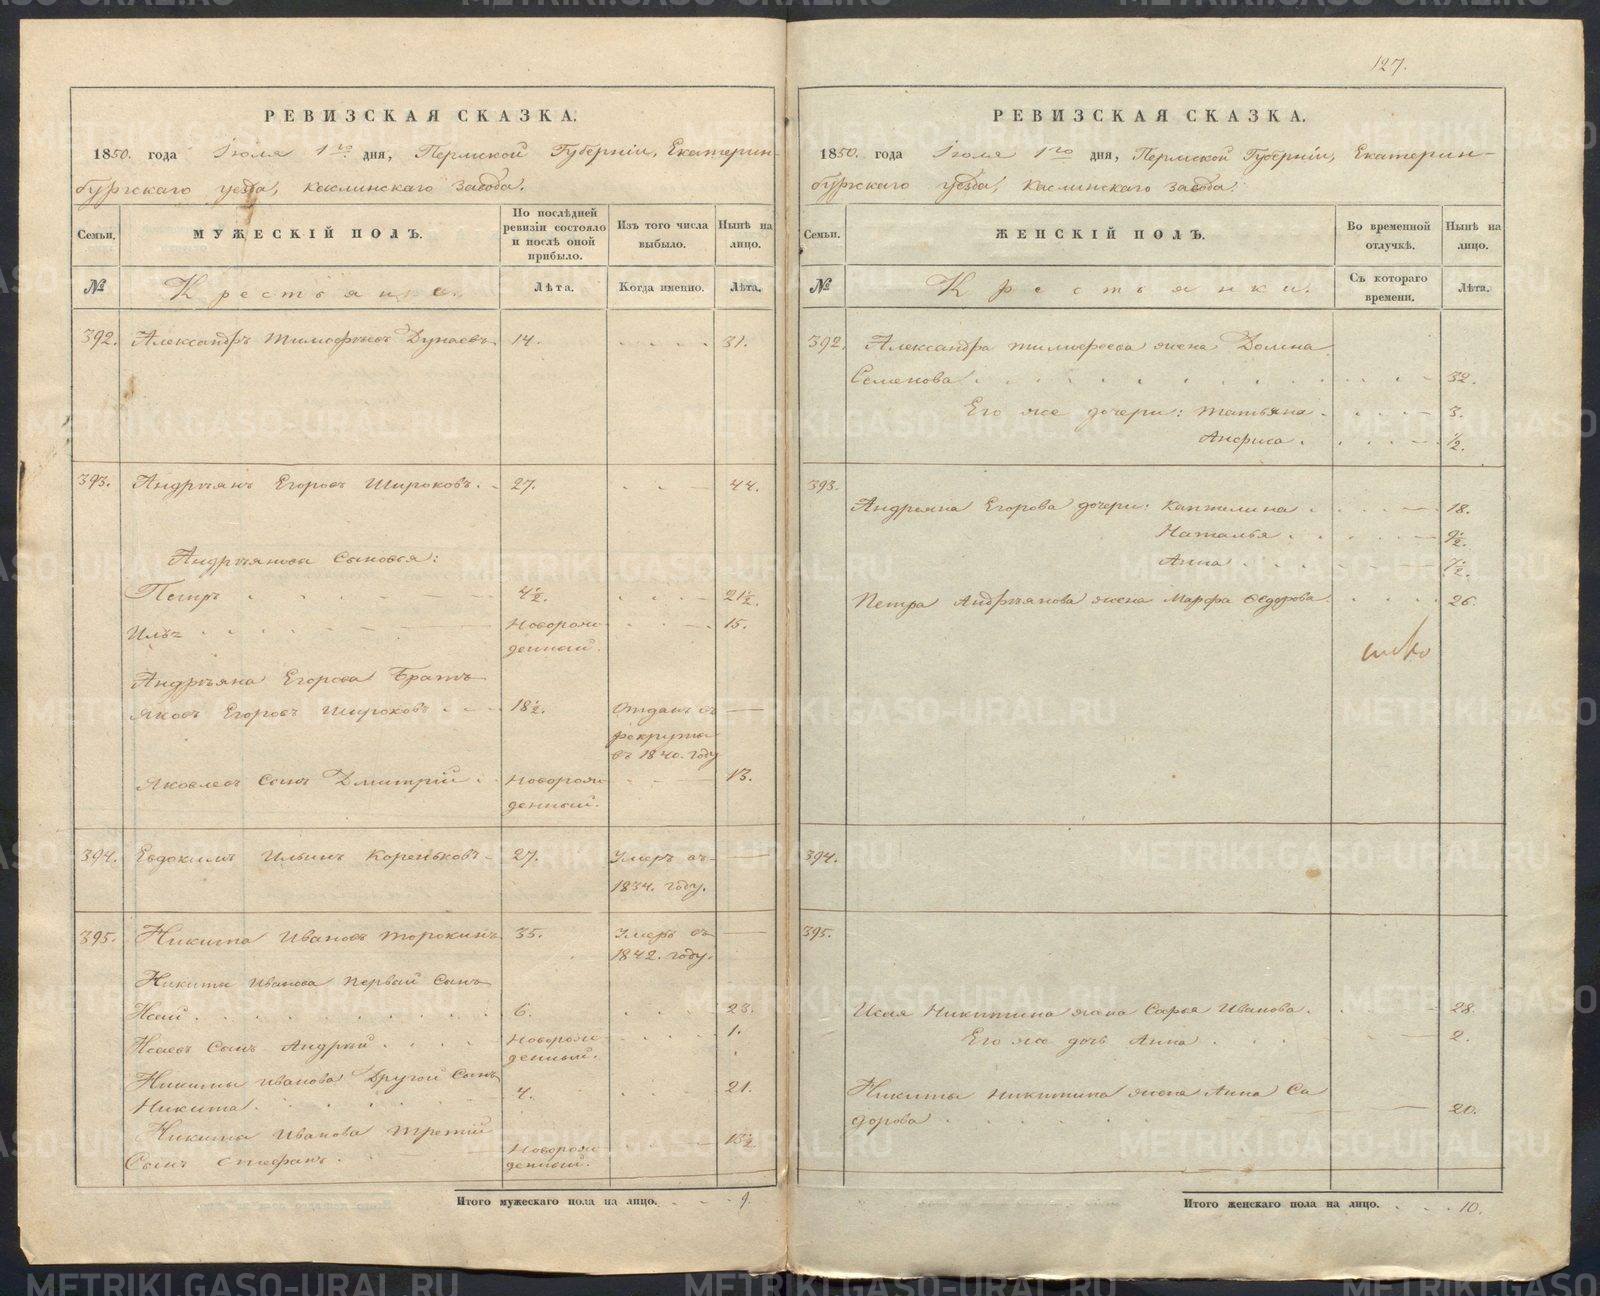 127.
РЕВИЗСКАЯ СКАЗКА.
1850. года Іюля 1го дня, Пермской Губерніи, Екатерин-
бургскаго уезда, Каслинскаго Завода.
Семьи. МУЖЕСКІЙ ПОЛЪ. По послѣдней ревизіи состояло и послѣ оной прибыло. Изъ того числа выбыло. Нынѣ на лицо.
№ Крестьяне. Лѣта. Когда именно. Лѣта.
392. Александръ Тимофѣевъ Дунаевъ 14. 31.
393. Андрѣянъ Егоровъ Широковъ. 27. 44.
Андрѣяновы Сыновья:
Петръ 4½. 21½.
Илья Новорож- 15.
денный.
Андрѣяна Егорова Братъ
Яковъ Егоровъ Широковъ 18½. Отданъ въ —
рекруты
въ 1840. году
Яковлевъ Сынъ Дмитрій Новорож- 13.
денный.
394. Евдокимъ Ильинъ Кореньковъ 27. Умеръ въ —
1834. году.
395. Никита Ивановъ Торокинъ 35. Умеръ въ —
1842. году.
Никиты Иванова Первый Сынъ
Исай 6. 23.
Исаевъ Сынъ Андрѣй Новорож- 1.
денный.
Никиты Иванова Другой Сынъ
Никита. 4. 21.
Никиты Иванова Третій
Сынъ Стефанъ. Новорож- 15½
денный.
Итого мужескаго пола на лицо. 9.
РЕВИЗСКАЯ СКАЗКА.
1850. года Іюля 1го дня, Пермской Губерніи, Екатерин-
бургскаго уезда, Каслинскаго Завода.
Семьи. ЖЕНСКІЙ ПОЛЪ. Во временной отлучкѣ. Нынѣ на лицо.
№ Крестьянки. Съ котораго времени. Лѣта.
392. Александра Тимофеева жена Домна
Семенова 32.
Его же дочери: Татьяна 3.
Анфиса ½.
393.
Андрьяна Егорова дочери: Каптелина 18.
Наталья 9½.
Анна 7½.
Петра Андрѣянова жена Марфа Федорова 26.
394.
395.
Исая Никитина жена Софья Иванова. 28.
Его же дочь Анна 2.
Никиты Никитина жена Анна Си
дорова 20.
Итого женскаго пола на лицо. 10.
METRIKI.GASO-URAL.RU